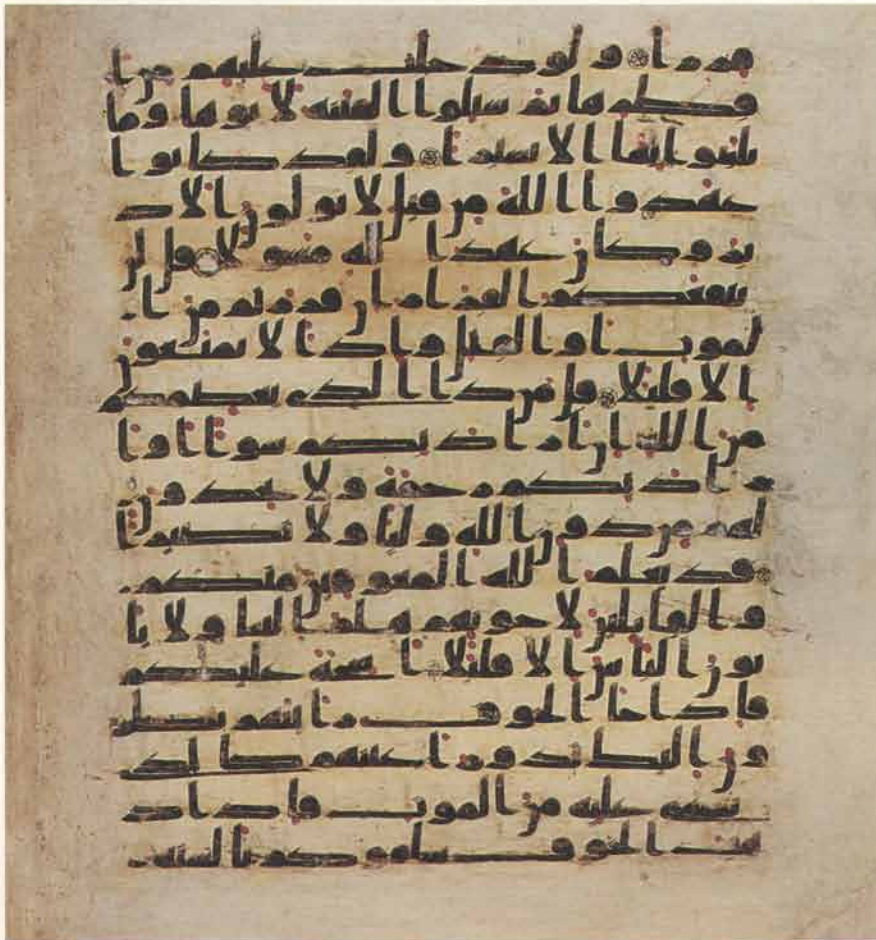 فرارا ولو دخلت عليهم من ا
قطرها ثم سئلوا الفتنة لاتوها وما
تلبثوا بها الا يسيرا ولقد كانوا
عهدوا الله من قبل لا يولون الاد
بر وكان عهد الله مسولا قل لن
ينفعكم الفرار ان فررتم من ا
لموت او القتل واذا لا تمتعون
الا قليلا قل من ذا الذي يعصمكم
من الله ان اراد بكم سوا او ا
راد بكم رحمة ولا يجدون
لهم من دون الله وليا ولا نصيرا
قد يعلم الله المعوقين منكم
والقايلين لاخونهم هلم الينا ولا يا
تون الباس الا قليلا اشحة عليكم
فاذا جا الخوف رايتهم ينظر
ون اليك تدور اعينهم كالذي
يغشى عليه من الموت فاذا ذ
هب الخوف سلقوكم بالسنة